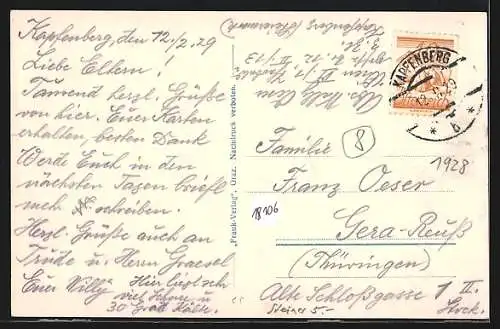 Kapfenberg, den 12./2. 29
Liebe Eltern
Tausend herzl. Grüße
von hier. Euer Karten
erhalten, besten Dank
Werde Euch in den
nächsten Tagen briefl
schreiben.
Herzl. Grüße auch an
Trude u. Herrn Graesel
Euer Willy Hier liegt sch
viel Schnee u
30 Grad Kälte.
"Frank-Verlag", Graz. Nachdruck verboten.
Kapfenberg (Steiermark)
Wien
KAPFENBERG
1 * b *
Familie
8
1928
Franz Oeser
18106
Gera-Reuß
(Thüringen)
Alte Schloßgasse 1 II.
Stock.
5.-